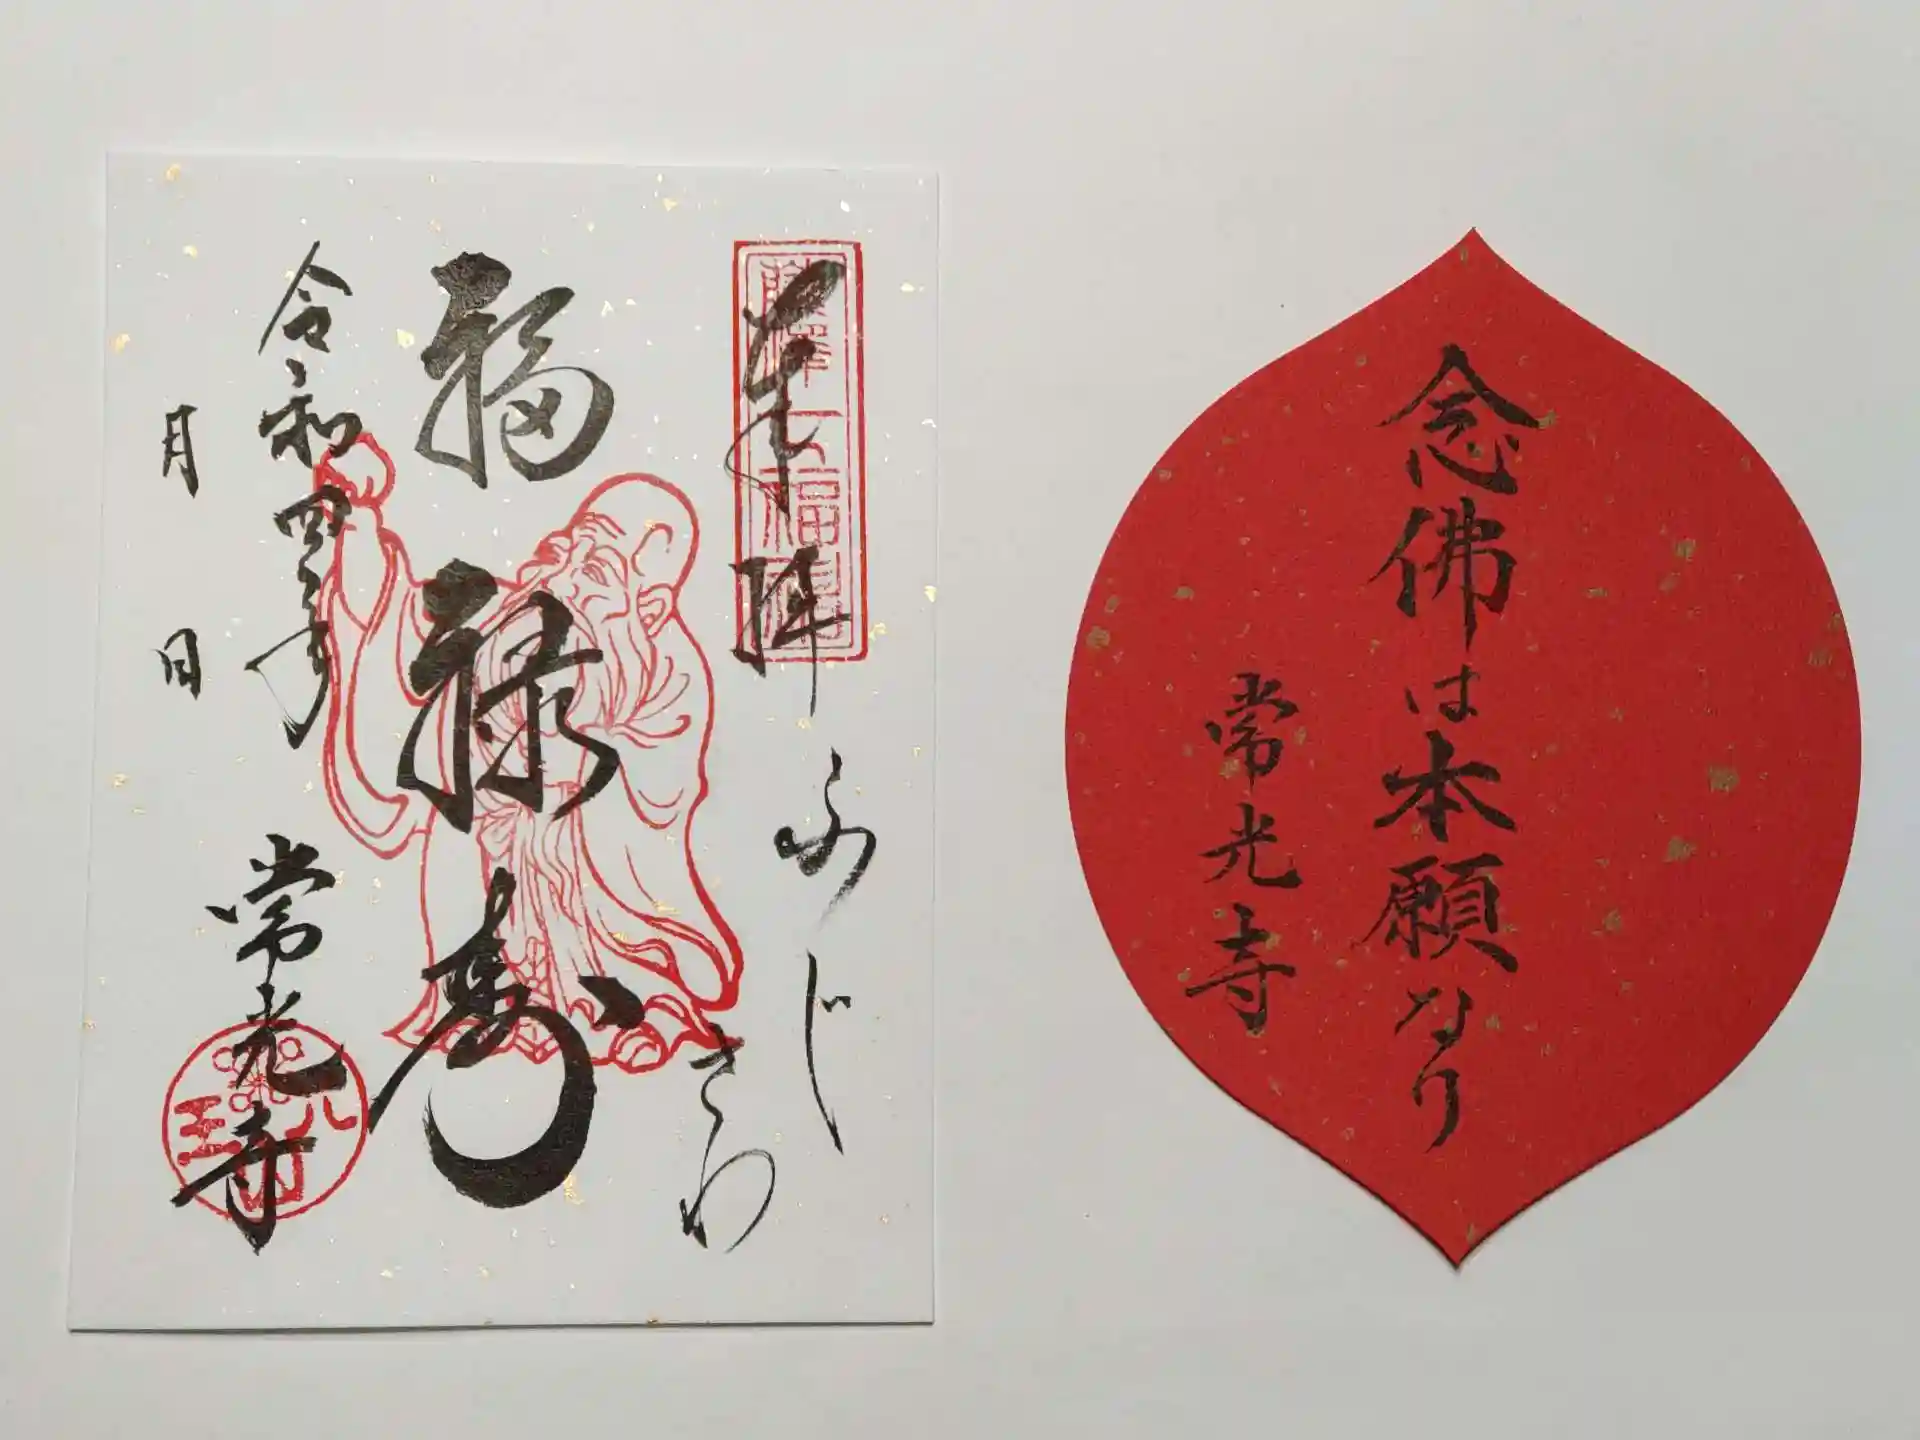 奉拝
ふじさわ
藤澤七福神
福禄寿
令和四年
月 日
常光寺
念佛は本願なり
常光寺